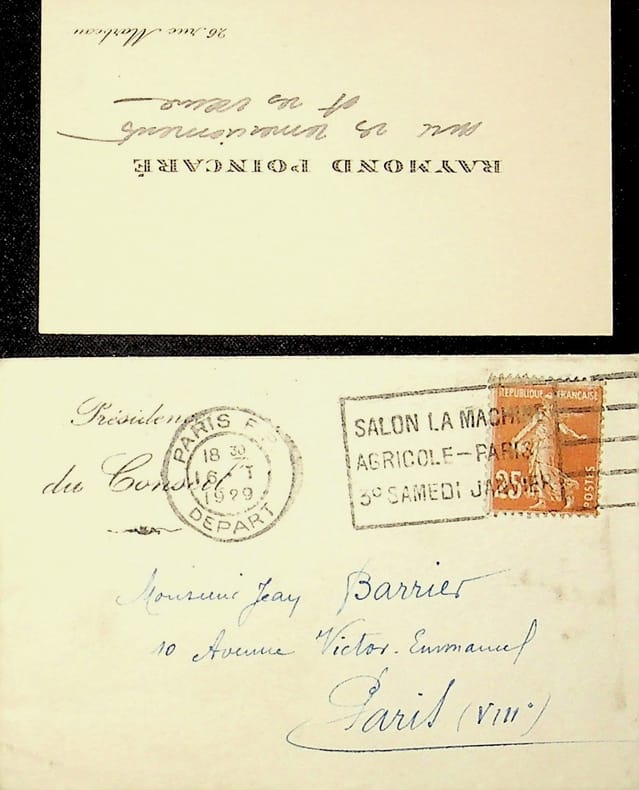 RAYMOND POINCARÉ
avec ses remerciements
et ses vœux
26, rue Marbeau
Présidence
du Conseil
PARIS
18 30
16
1929
DEPART
SALON LA MACHINE
AGRICOLE-PARIS
3º SAMEDI JANVIER
REPUBLIQUE FRANÇAISE
25c
POSTES
Monsieur Jean Barrier
10 Avenue Victor-Emmanuel
Paris (VIIIº)